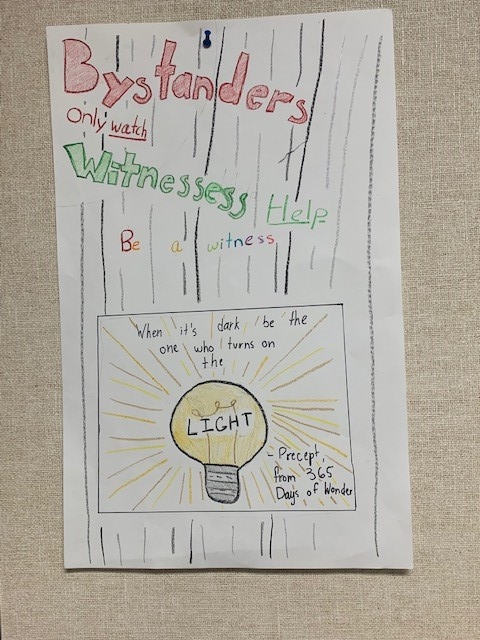 Bystanders
Only watch
Witnessess Help
Be a witness
When it's dark be the
one who turns on
the
LIGHT
- Precept,
from 365
Days of Wonder